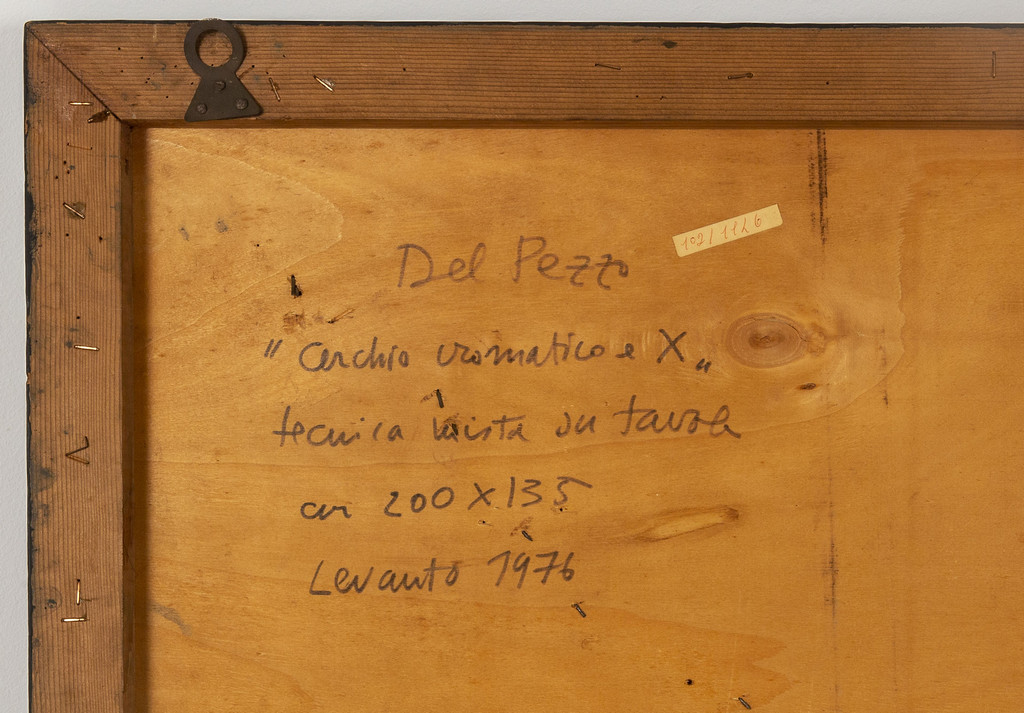 102/1126
Del Pezzo
"Cerchio cromatico e X"
tecnica mista su tavola
cm 200 X 135
Levanto 1976